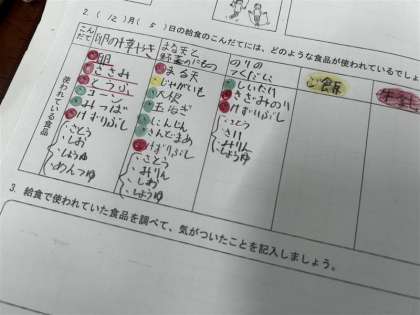 2.(12)月(5)日の給食のこんだてには、どのような食品が使われているでしょ
こんだて
卵の千草やき
まる天と
野菜のにもの
のりの
つくだに
ご飯
牛乳
使われている食品
卵
ささみ
とうふ
コーン
みつばぐ
けずりぶし
・さとう
・しお
・しょうゆ
・めんつゆ
まる天
じゃがいも
大根
玉ねぎ
にんじん
きんとまめ
けずりぶし
・さとう
・みりん
・しお
・しょうゆ
しいたけ
きざみのり
けずりぶし
・さとう
・さけ
・みりん
・しょうゆ
3. 給食で使われていた食品を調べて、気がついたことを記入しましょう。